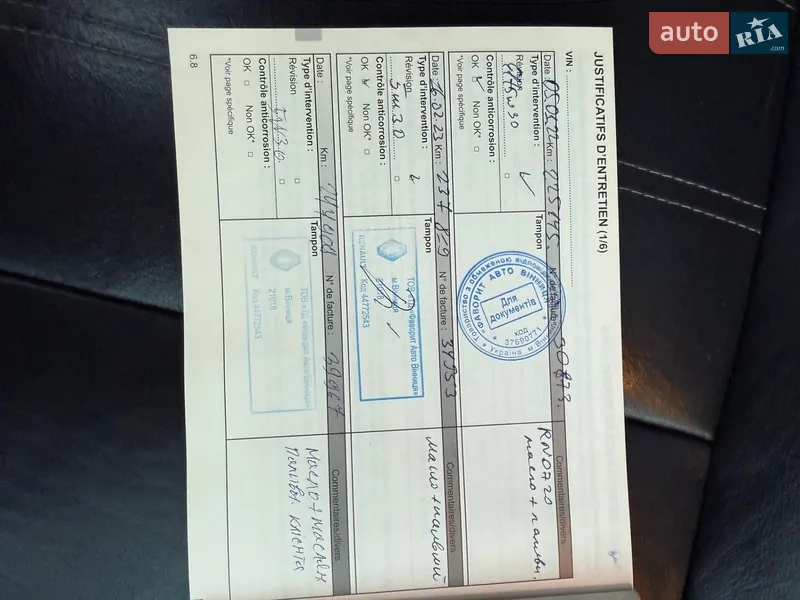 auto RIA
.com
JUSTIFICATIFS D'ENTRETIEN (1/6)
VIN :
Date : 05.05.22 Km : 225145 N° de facture : 30873.
Type d'intervention :
Tampon
Commentaires/divers
Révision
5W30
Contrôle anticorrosion :
OK Non OK*
*Voir page spécifique
Товариство з обмеженою відповідальністю
"ФАВОРИТ АВТО ВІННИЦЯ"
Для
документів
код
37690771
* Україна м.
RN0720
масло +
Date : 16.02.23 Km : 237 859 N° de facture : 34953
Type d'intervention :
Tampon
Commentaires/divers
Révision
5W30
Contrôle anticorrosion :
OK Non OK*
*Voir page spécifique
RENAULT
Фаворит Авто Вінниця»
м.Вінниця
21018
Код 44772543
Date : Km : N° de facture :
Type d'intervention :
Tampon
Commentaires/divers
Révision
Contrôle anticorrosion :
OK Non OK*
*Voir page spécifique
RENAULT
ТОВ «ТД «Фаворит Авто Вінниця»
м.Вінниця
21018
Код 44772543
клієнта
6.8